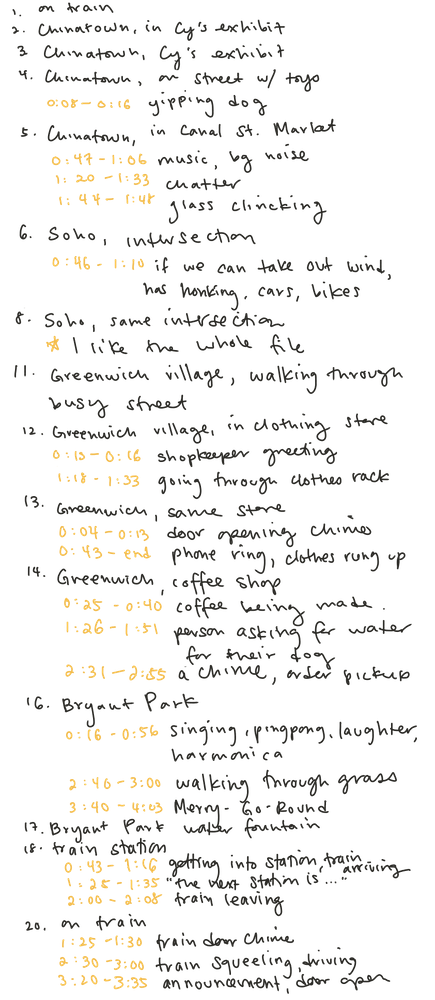 1. on train
2. Chinatown, in Cy's exhibit
3. Chinatown, Cy's exhibit
4. Chinatown, on street w/ toys
0:08 - 0:16 yipping dog
5. Chinatown, in Canal St. Market
0:47 - 1:06 music, bg noise
1:20 - 1:33 chatter
1:44 - 1:48 glass clincking
6. Soho, intersection
0:46 - 1:10 if we can take out wind,
has honking, cars, bikes
8. Soho, same intersection
☆ I like the whole file
11. Greenwich village, walking through
busy street
12. Greenwich village, in clothing store
0:10 - 0:16 shopkeeper greeting
1:18 - 1:33 going through clothes rack
13. Greenwich, same store
0:04 - 0:13 door opening chimes
0:43 - end phone ring, clothes rung up
14. Greenwich, coffee shop
0:25 - 0:40 coffee being made.
1:26 - 1:51 person asking for water
for their dog
2:31 - 2:55 a chime, order pickup
16. Bryant Park
0:16 - 0:56 singing, pingpong, laughter,
harmonica
2:46 - 3:00 walking through grass
3:40 - 4:03 Merry-Go-Round
17. Bryant Park water fountain
18. train station
0:43 - 1:16 getting into station, train arriving
1:25 - 1:35 "the next station is ..."
2:00 - 2:08 train leaving
20. on train
1:25 - 1:30 train door chime
2:30 - 3:00 train squeeling, driving
3:20 - 3:35 announcement, door open